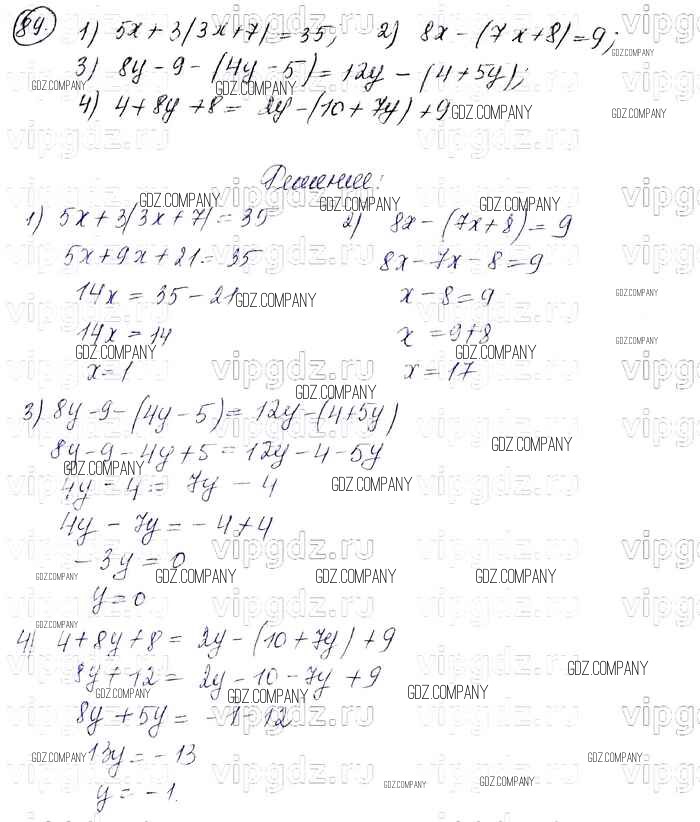 89. 1) 5x + 3(3x + 7) = 35; 2) 8x - (7x + 8) = 9;
3) 8y - 9 - (4y - 5) = 12y - (4 + 5y);
4) 4 + 8y + 8 = 2y - (10 + 7y) + 9
Решение:
1) 5x + 3(3x + 7) = 35
5x + 9x + 21 = 35
14x = 35 - 21
14x = 14
x = 1
2) 8x - (7x + 8) = 9
8x - 7x - 8 = 9
x - 8 = 9
x = 9 + 8
x = 17
3) 8y - 9 - (4y - 5) = 12y - (4 + 5y)
8y - 9 - 4y + 5 = 12y - 4 - 5y
4y - 4 = 7y - 4
4y - 7y = -4 + 4
-3y = 0
y = 0
4) 4 + 8y + 8 = 2y - (10 + 7y) + 9
8y + 12 = 2y - 10 - 7y + 9
8y + 5y = -1 - 12
13y = -13
y = -1.
GDZ.COMPANY
vipgdz.ru